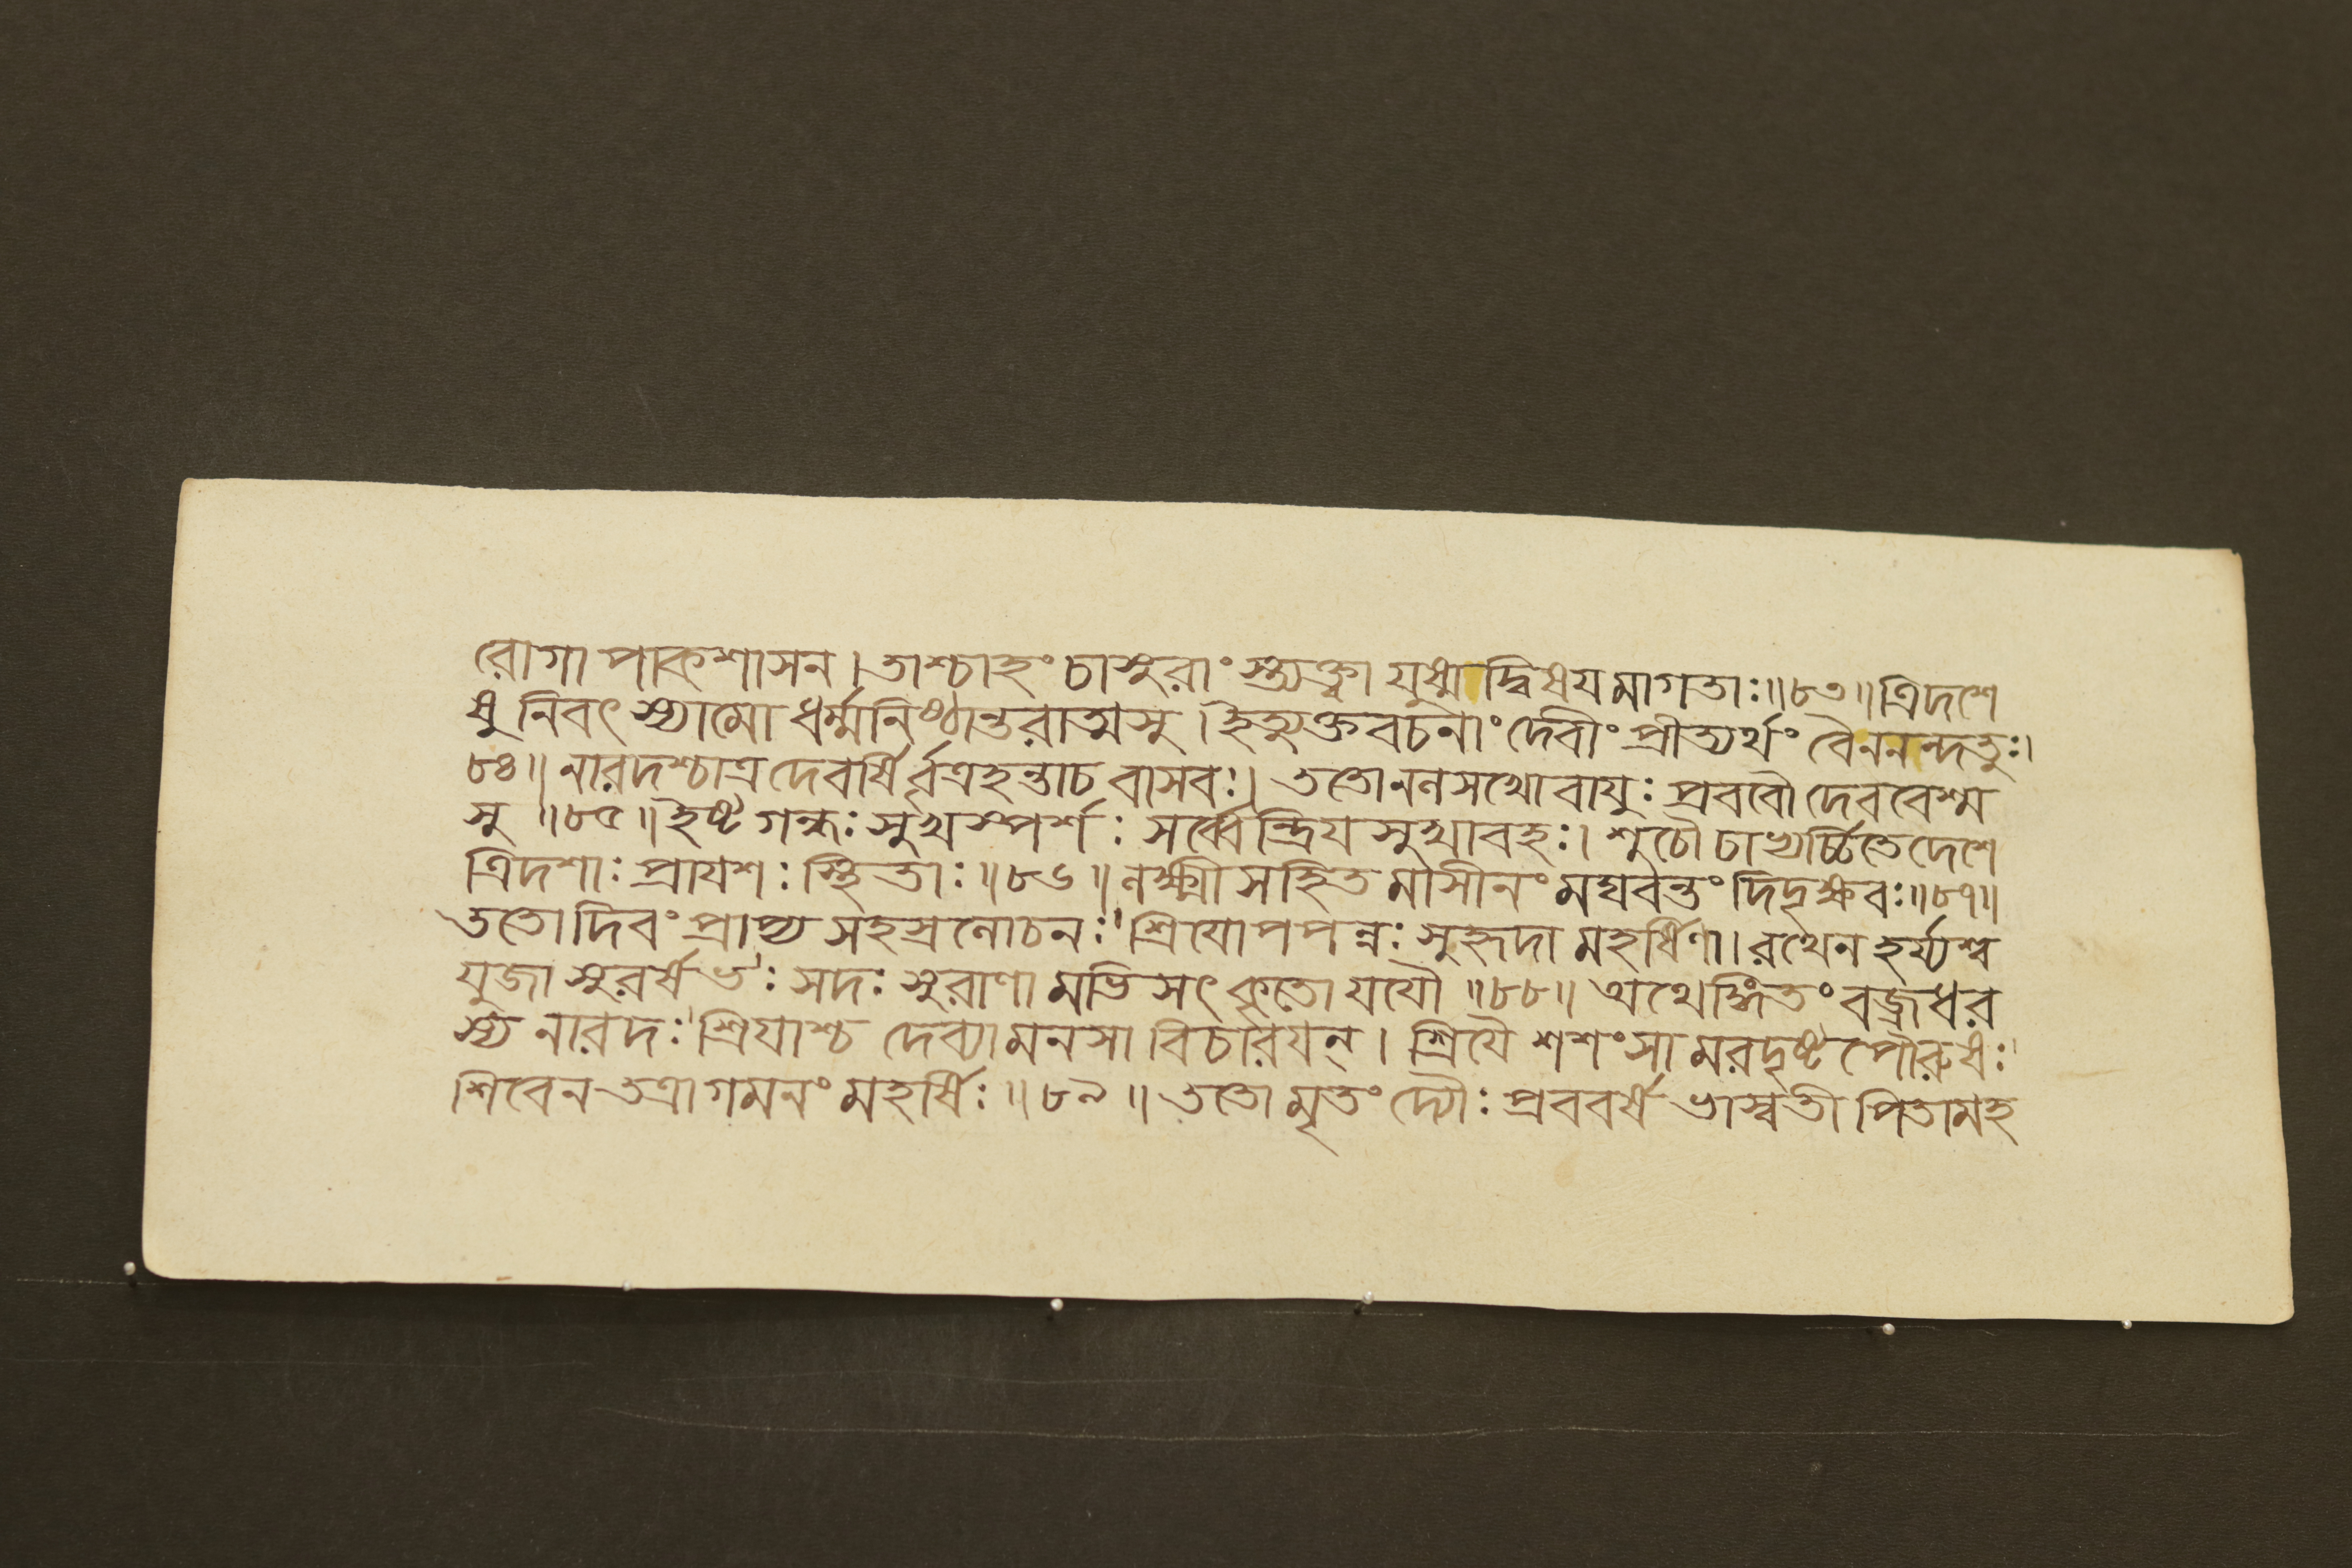 রোগা পাকশাসন। তাশ্চাহং চাসুরাং স্ত্যক্ত্বা যুষ্মদ্বিষযমাগতাঃ॥৮৩॥ ত্রিদশে
ষু নিবৎ স্যামো ধর্ম্মনিষ্ঠান্তরাত্মসু। ইত্যুক্তবচনাং দেবীং প্রীত্যর্থং বৈননন্দতুঃ।
৮৪॥ নারদশ্চাত্র দেবর্ষির্বৃত্রহন্তাচ বাসবঃ। ততোনলসখো বাযুঃ প্রববৌ দেববেশ্ম
সু ॥৮৫॥ ইষ্টগন্ধঃ সুখস্পর্শঃ সর্ব্বেন্দ্রিযসুখাবহঃ। শুচৌ চাভ্যর্চ্চিতে দেশে
ত্রিদশাঃ প্রাযশঃ স্থিতাঃ॥৮৬॥ লক্ষ্মীসহিতমাসীনং মঘবন্তং দিদৃক্ষবঃ॥৮৭॥
ততো দিবং প্রাপ্য সহস্রলোচনঃ' শ্রিযোপপন্নঃ সুহৃদা মহর্ষিণা। রথেন হর্য্যশ্ব
যুজা সুরর্ষভঃ' সদঃ সুরাণামভিসৎকৃতো যযৌ ॥৮৮॥ অথেঙ্গিতং বজ্রধর
স্য নারদঃ' শ্রিযাশ্চ দেব্যা মনসা বিচারযন্। শ্রিযৈ শশংসামরদৃষ্টপৌরুষঃ'
শিবেন তত্রাগমনং মহর্ষিঃ॥৮৯॥ ততোমৃতং দ্যৌঃ প্রববর্ষ ভাস্বতী পিতামহ